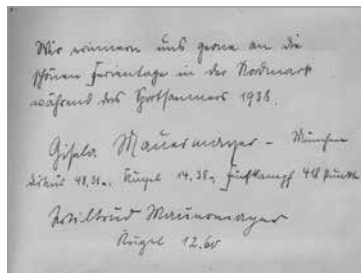 Wir erinnern uns gerne an die
schönen Ferientage in der Nordmark
während des Sportsommers 1936.
Gisela Mauermayer – München
Diskus 48,31 m. Kugel 14,38 m Fünfkampf 418 Punkte
Wiltrud Mauermayer
Kugel 12.60